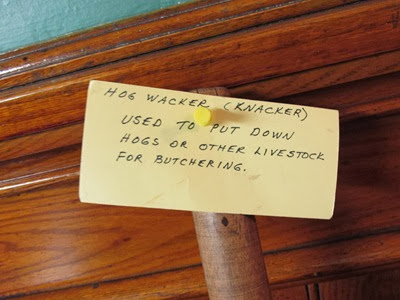 HOG WACKER (KNACKER)
USED TO PUT DOWN
HOGS OR OTHER LIVESTOCK
FOR BUTCHERING.